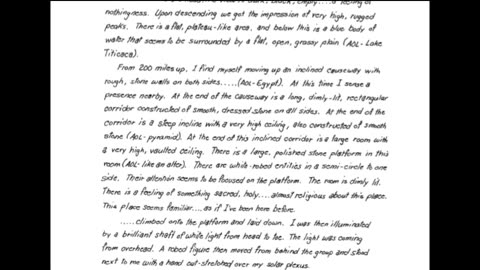 nothingness. Upon descending we got the impression of very high, rugged
peaks. There is a flat, plateau-like area, and below this is a blue body of
water that seems to be surrounded by a flat, open, grassy plain (AOL - Lake
Titicaca).
From 200 miles up, I find myself moving up an inclined causeway with
rough, stone walls on both sides.....(AOL-Egypt). At this time I sense a
presence nearby. At the end of the causeway is a long, dimly-lit, rectangular
corridor constructed of smooth, dressed stone on all sides. At the end of the
corridor is a steep incline with a very high ceiling, also constructed of smooth
stone (AOL - pyramid). At the end of this inclined corridor is a large room with
a very high, vaulted ceiling. There is a large, polished stone platform in this
room (AOL-like an alter). There are white-robed entities in a semi-circle to one
side. Their attention seems to be focused on the platform. The room is dimly lit.
There is a feeling of something sacred, holy....almost religious about this place.
This place seems familiar....as if I've been here before.
.....climbed onto the platform and laid down. I was then illuminated
by a brilliant shaft of white light from head to toe. The light was coming
from overhead. A robed figure then moved from behind the group and stood
next to me with a hand out-stretched over my solar plexus.